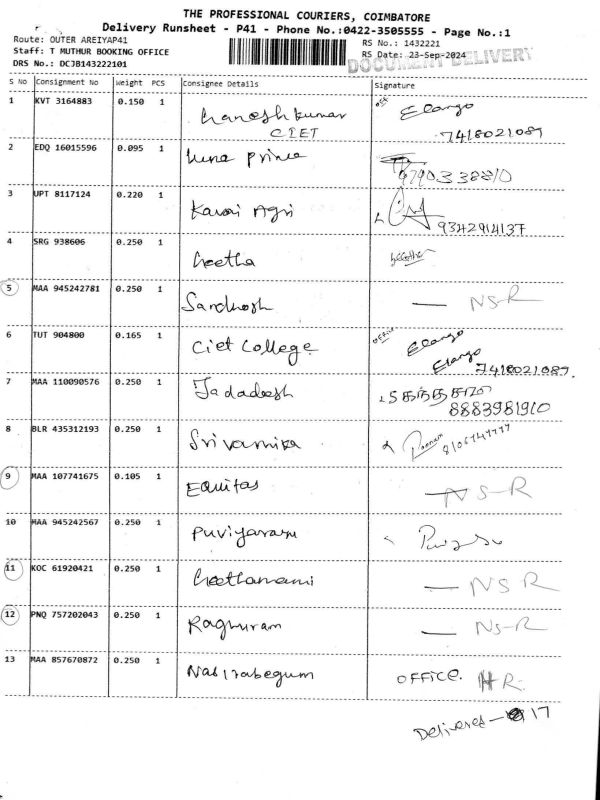 THE PROFESSIONAL COURIERS, COIMBATORE
Delivery Runsheet - P41 - Phone No.:0422-3505555 - Page No.:1
Route: OUTER AREIYAP41
RS No.: 1432221
Staff: T MUTHUR BOOKING OFFICE
RS Date: 23-Sep-2024
DOCUMENT DELIVERY
DRS No.: DCJB143222101
S No Consignment No Weight PCS Consignee Details Signature
1 KVT 3164883 0.150 1 Ganeshkumar Elango
CIET 7418021089
2 EDQ 16015596 0.095 1 Luna prince
3 UPT 8117124 0.220 1 Kavai Agri 9342914137
4 SRG 938606 0.250 1 Geetha
5 MAA 945242781 0.250 1 Santhosh — NSR
6 TUT 904800 0.165 1 Ciet College OFFICE Elango
Elango 7418021089.
7 MAA 110090576 0.250 1 Jadadesh
8883981910
8 BLR 435312193 0.250 1 Srivarnika
9 MAA 107741675 0.105 1 Equitas — NS-R
10 MAA 945242567 0.250 1 Puviyarasu
11 KOC 61920421 0.250 1 Geethamani — NSR
12 PNQ 757202043 0.250 1 Raghuram — NS-R
13 MAA 857670872 0.250 1 Nasirabegum OFFICE. HR.
Delivered - 17